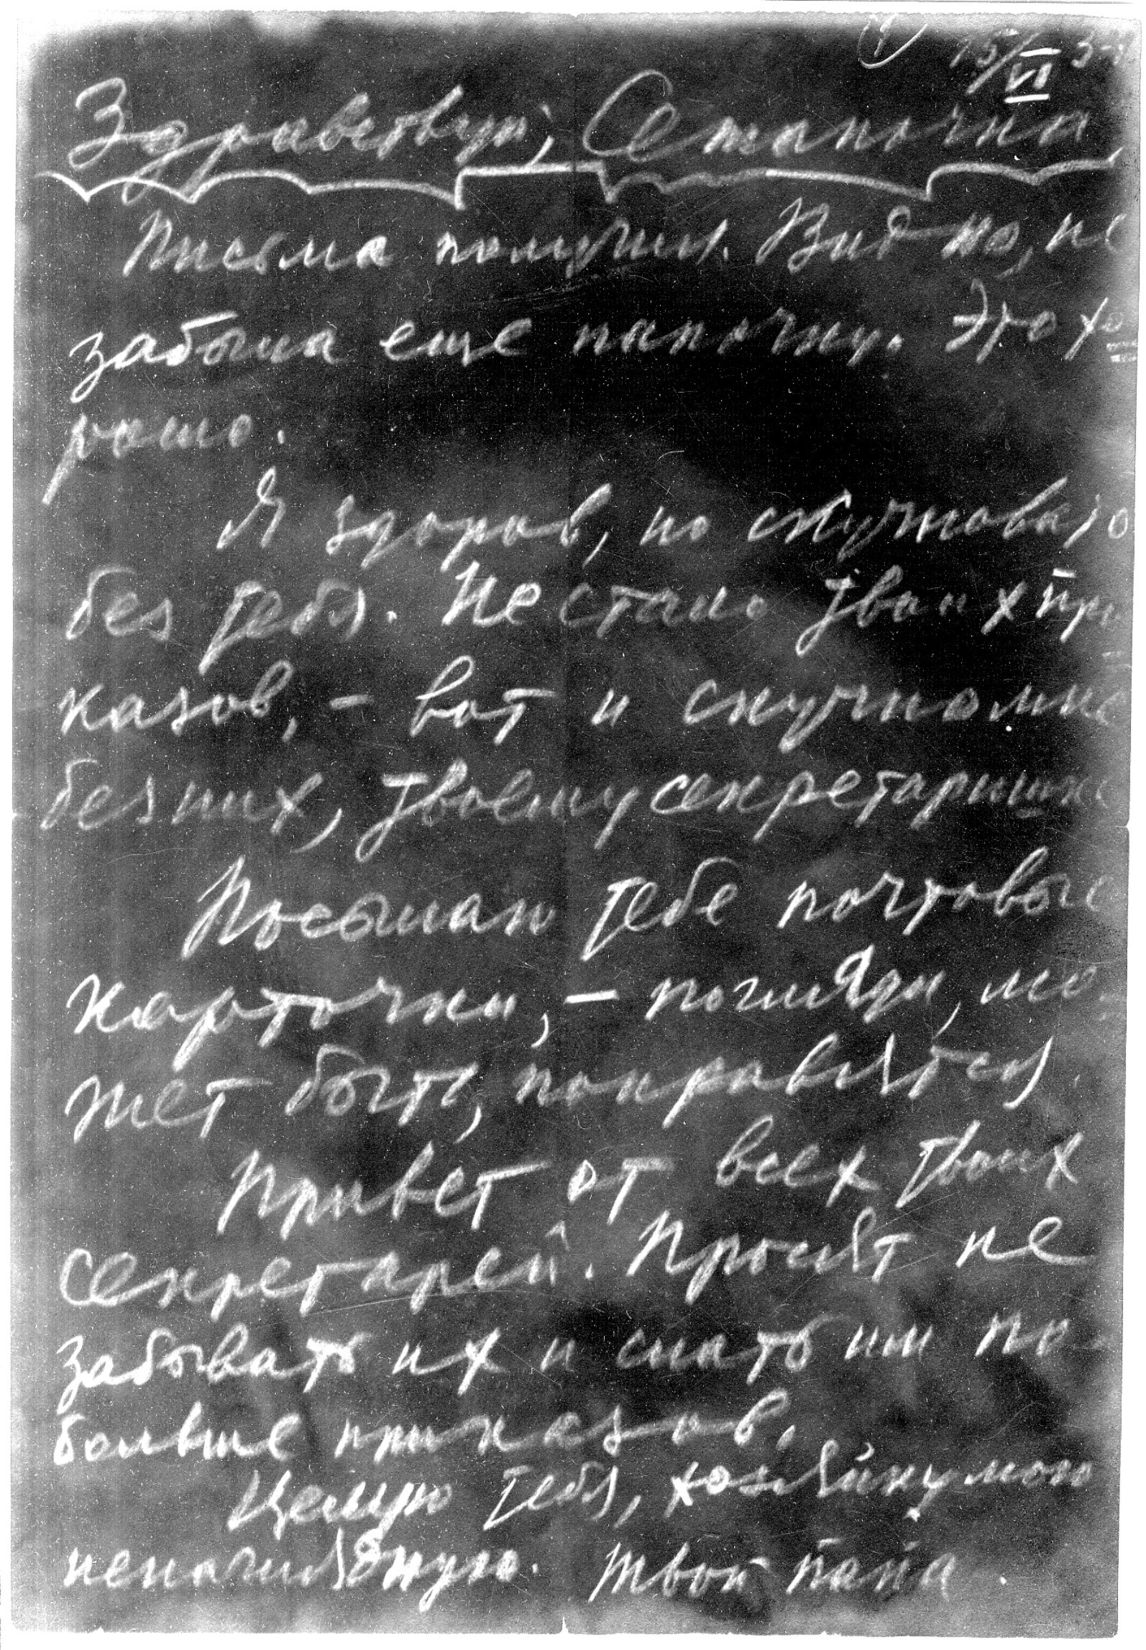 1) 15/VI 3
Здравствуй, Сетаночка
Письма получил. Видно, не
забыла еще папочку. Это хо
рошо.
Я здоров, но скучновато
без тебя. Не стало твоих при
казов, – вот и скучно мне
без них, твоему секретаришке
Посылаю тебе почтовые
карточки, – погляди, мо-
жет быть, понравятся.
Привет от всех твоих
секретарей. Просят не
забывать их и слать им по-
больше приказов.
Целую тебя, хозяйку мою
ненаглядную. Твой папа.